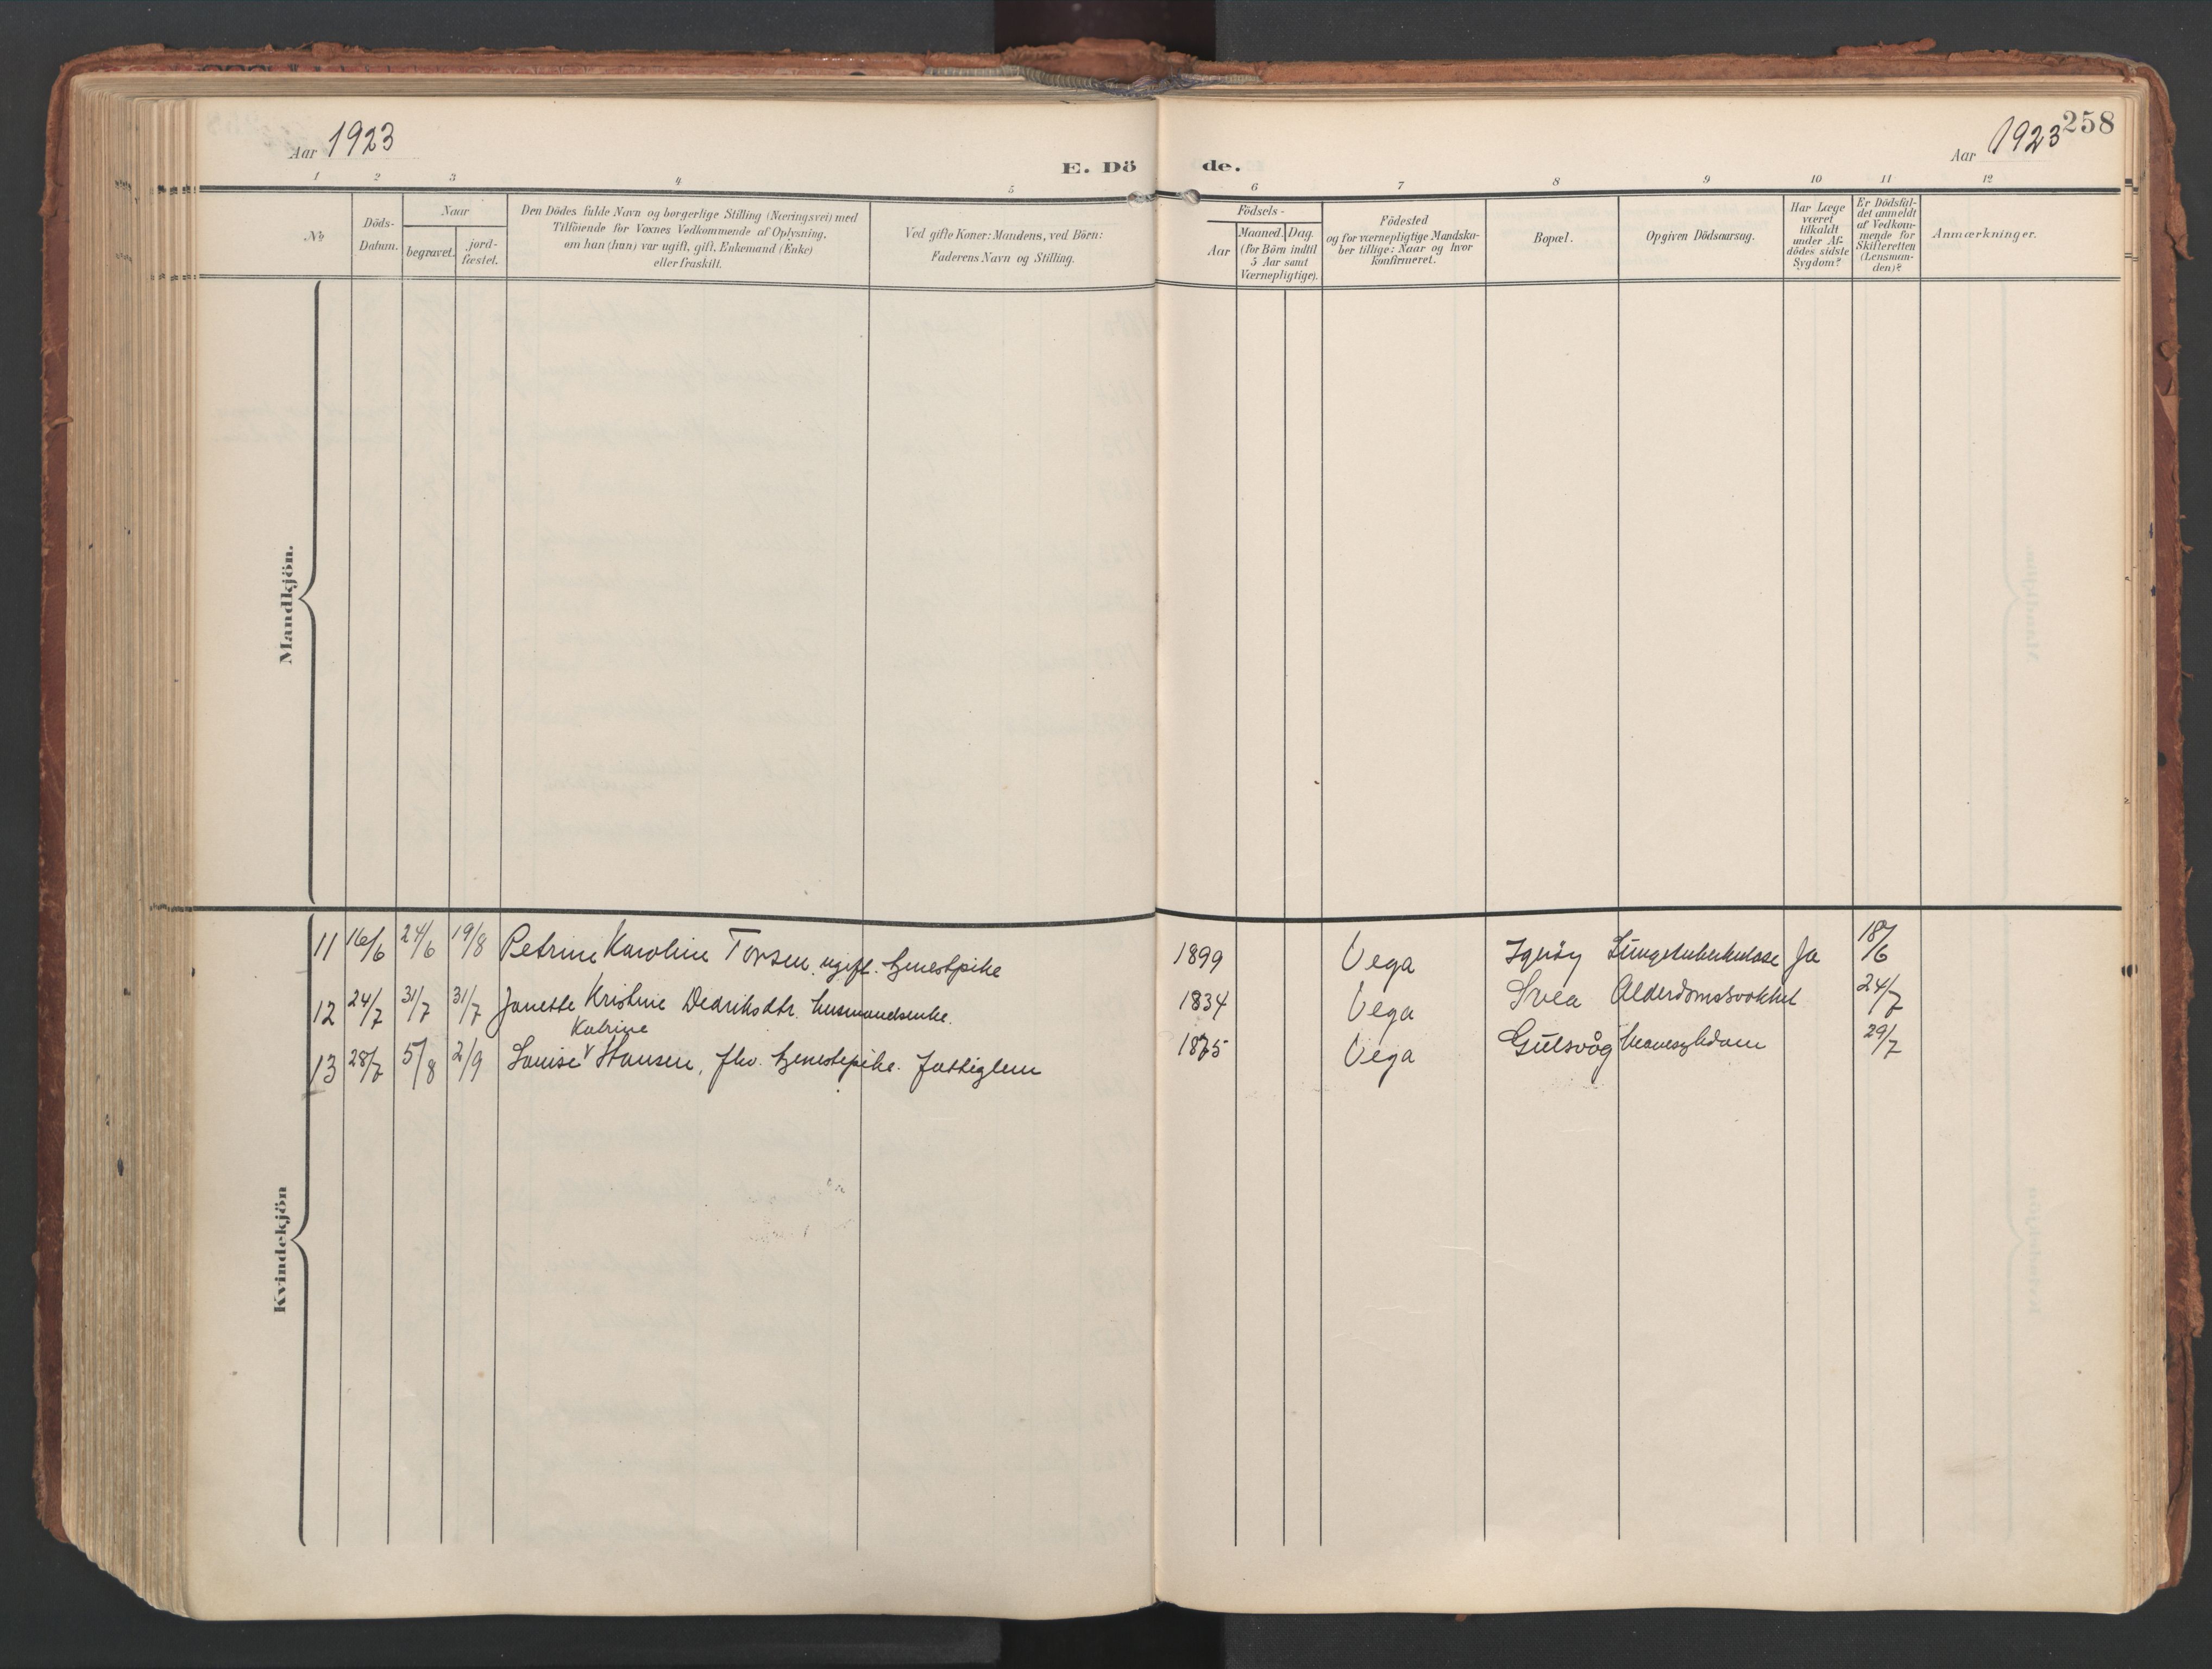 Aar 1923
E. Dö de.
Aar 1923 258
1 2 3 4 5 6 7 8 9 10 11 12
No
Döds-
Datum.
Naar
begravet.
jord-
fæstet.
Den Dödes fulde Navn og borgerlige Stilling (Næringsvei) med
Tilföiende for Voxnes Vedkommende af Oplysning,
om han (hun) var ugift, gift, Enkemand (Enke)
eller fraskilt.
Ved gifte Koner: Mandens, ved Börn:
Faderens Navn og Stilling.
Födsels-
Aar
Maaned. Dag.
(for Börn indtil
5 Aar samt
Værnepligtige).
Födested
og for værnepligtige Mandska-
ber tillige: Naar og hvor
konfirmeret.
Bopæl.
Opgiven Dödsaarsag.
Har Læge
været
tilkaldt
under Af-
dödes sidste
Sygdom?
Er Dödsfal-
det anmeldt
af Vedkom-
mende for
Skifteretten
(Lensman-
den)?
Anmærkninger.
Mandkjön.
11 16/6 24/6 19/8 Petrine Karoline Torsen, ugift. tjenestpike 1899 Vega Igeröy Lungetuberkulose Ja 18/6
12 24/7 31/7 31/7 Janette Kristine Dedriksdtr. husmandsenke. 1834 Vega Svea Alderdomssvakhet 24/7
Katrine
13 28/7 5/8 2/9 Louise Hansen, fhv. tjenestepike. Fattiglem 1875 Vega Gulsvåg 29/7
Kvindekjön